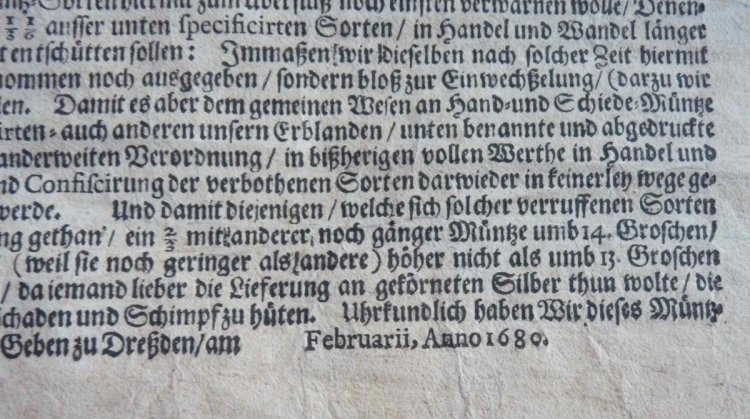 Sorten hiermit zum überfluß noch einsten verwarnen wolle / Denen-
1/3 1/6 ausser unten specificirten Sorten / in Handel und Wandel länger
entschütten sollen: Immaßen wir dieselben nach solcher Zeit hiermit
nommen noch ausgegeben / sondern bloß zur Einwechßelung / (darzu wir
len. Damit es aber dem gemeinen Wesen an Hand- und Schiede-Müntze
irten- auch anderen unsern Erblanden / unten benannte und abgedruckte
anderweiten Verordnung / in bißherigen vollen Werthe in Handel und
nd Confiscirung der verbothenen Sorten darwieder in keinerley wege ge-
werde. Und damit diejenigen / welche sich solcher verruffenen Sorten
ng gethan / ein 2/3 mit anderer, noch gänger Müntze umb 14. Groschen /
(weil sie noch geringer als andere) höher nicht als umb 13. Groschen
/ da iemand lieber die Lieferung an gekörneten Silber thun wolte / die
Schaden und Schimpf zu hüten. Uhrkundlich haben Wir dieses Müntz-
Geben zu Dreßden / am Februarii, Anno 1680.